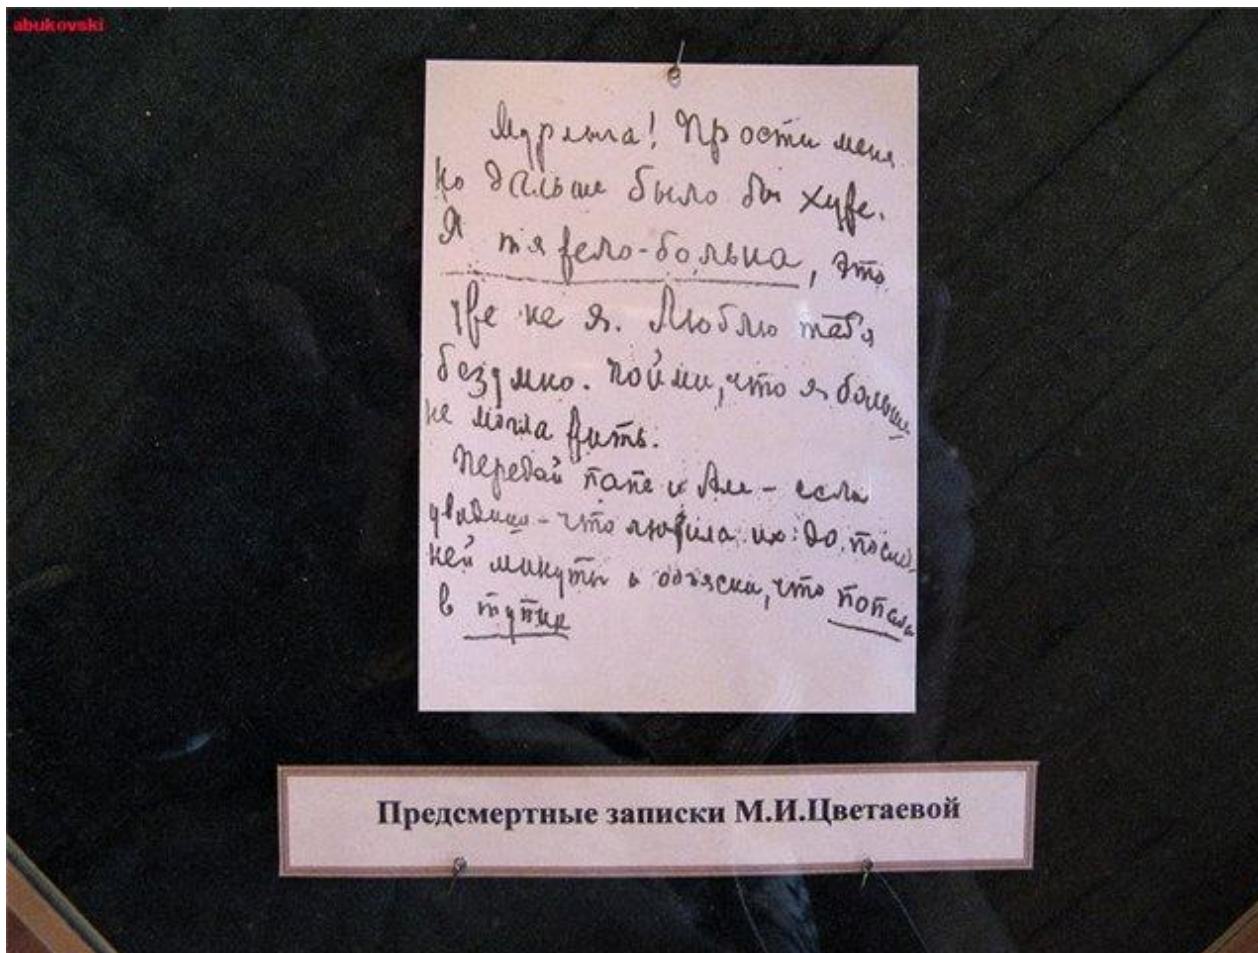 abukovski
Мурлыга! Прости меня
но дальше было бы хуже.
Я тяжело-больна, это
уже не я. Люблю тебя
безумно. Пойми, что я больше
не могла жить.
Передай папе и Але – если
увидишь – что любила их до послед-
ней минуты и объясни, что попала
в тупик
Предсмертные записки М.И.Цветаевой